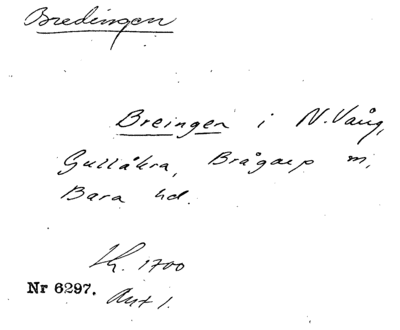 Bredingen
Breingen i N. Vång,
Gullåkra, Brågarp m,
Bara hd.
Lh. 1700
Nr 6297.
Akt 1.